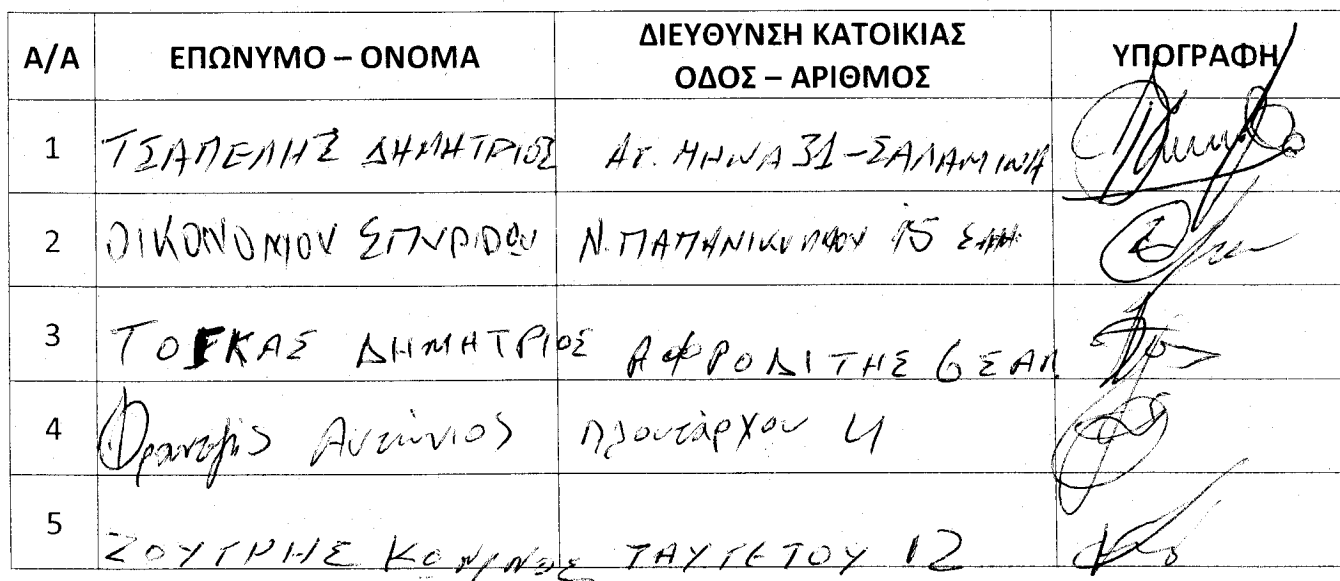 Α/Α ΕΠΩΝΥΜΟ – ΟΝΟΜΑ ΔΙΕΥΘΥΝΣΗ ΚΑΤΟΙΚΙΑΣ ΟΔΟΣ – ΑΡΙΘΜΟΣ ΥΠΟΓΡΑΦΗ
1 ΤΣΑΠΕΛΗΣ ΔΗΜΗΤΡΙΟΣ ΑΓ. ΜΗΝΑ 31-ΣΑΛΑΜΙΝΑ
2 ΟΙΚΟΝΟΜΟΥ ΣΠΥΡΙΔΩΝ Ν. 15
3 ΔΗΜΗΤΡΙΟΣ ΑΦΡΟΔΙΤΗΣ 6 ΣΑΛ
4 Φραντζής Αντώνιος Πλουτάρχου 4
5 ΖΟΥΤΡΗΣ ΤΑΥΓΕΤΟΥ 12